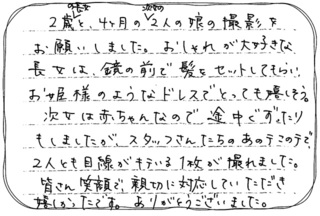 の長女 次女の
2歳と、4ヶ月の2人の娘の撮影を
お願いしました。おしゃれが大好きな
長女は、鏡の前で髪をセットしてもらい、
お姫様のようなドレスでとっても嬉しそう。
次女は赤ちゃんなので途中ぐずったり
もしましたが、スタッフさんたちのあの手この手で、
2人とも目線がキている1枚が撮れました。
皆さん笑顔で、親切に対応していただき
嬉しかったです。ありがとうございました。